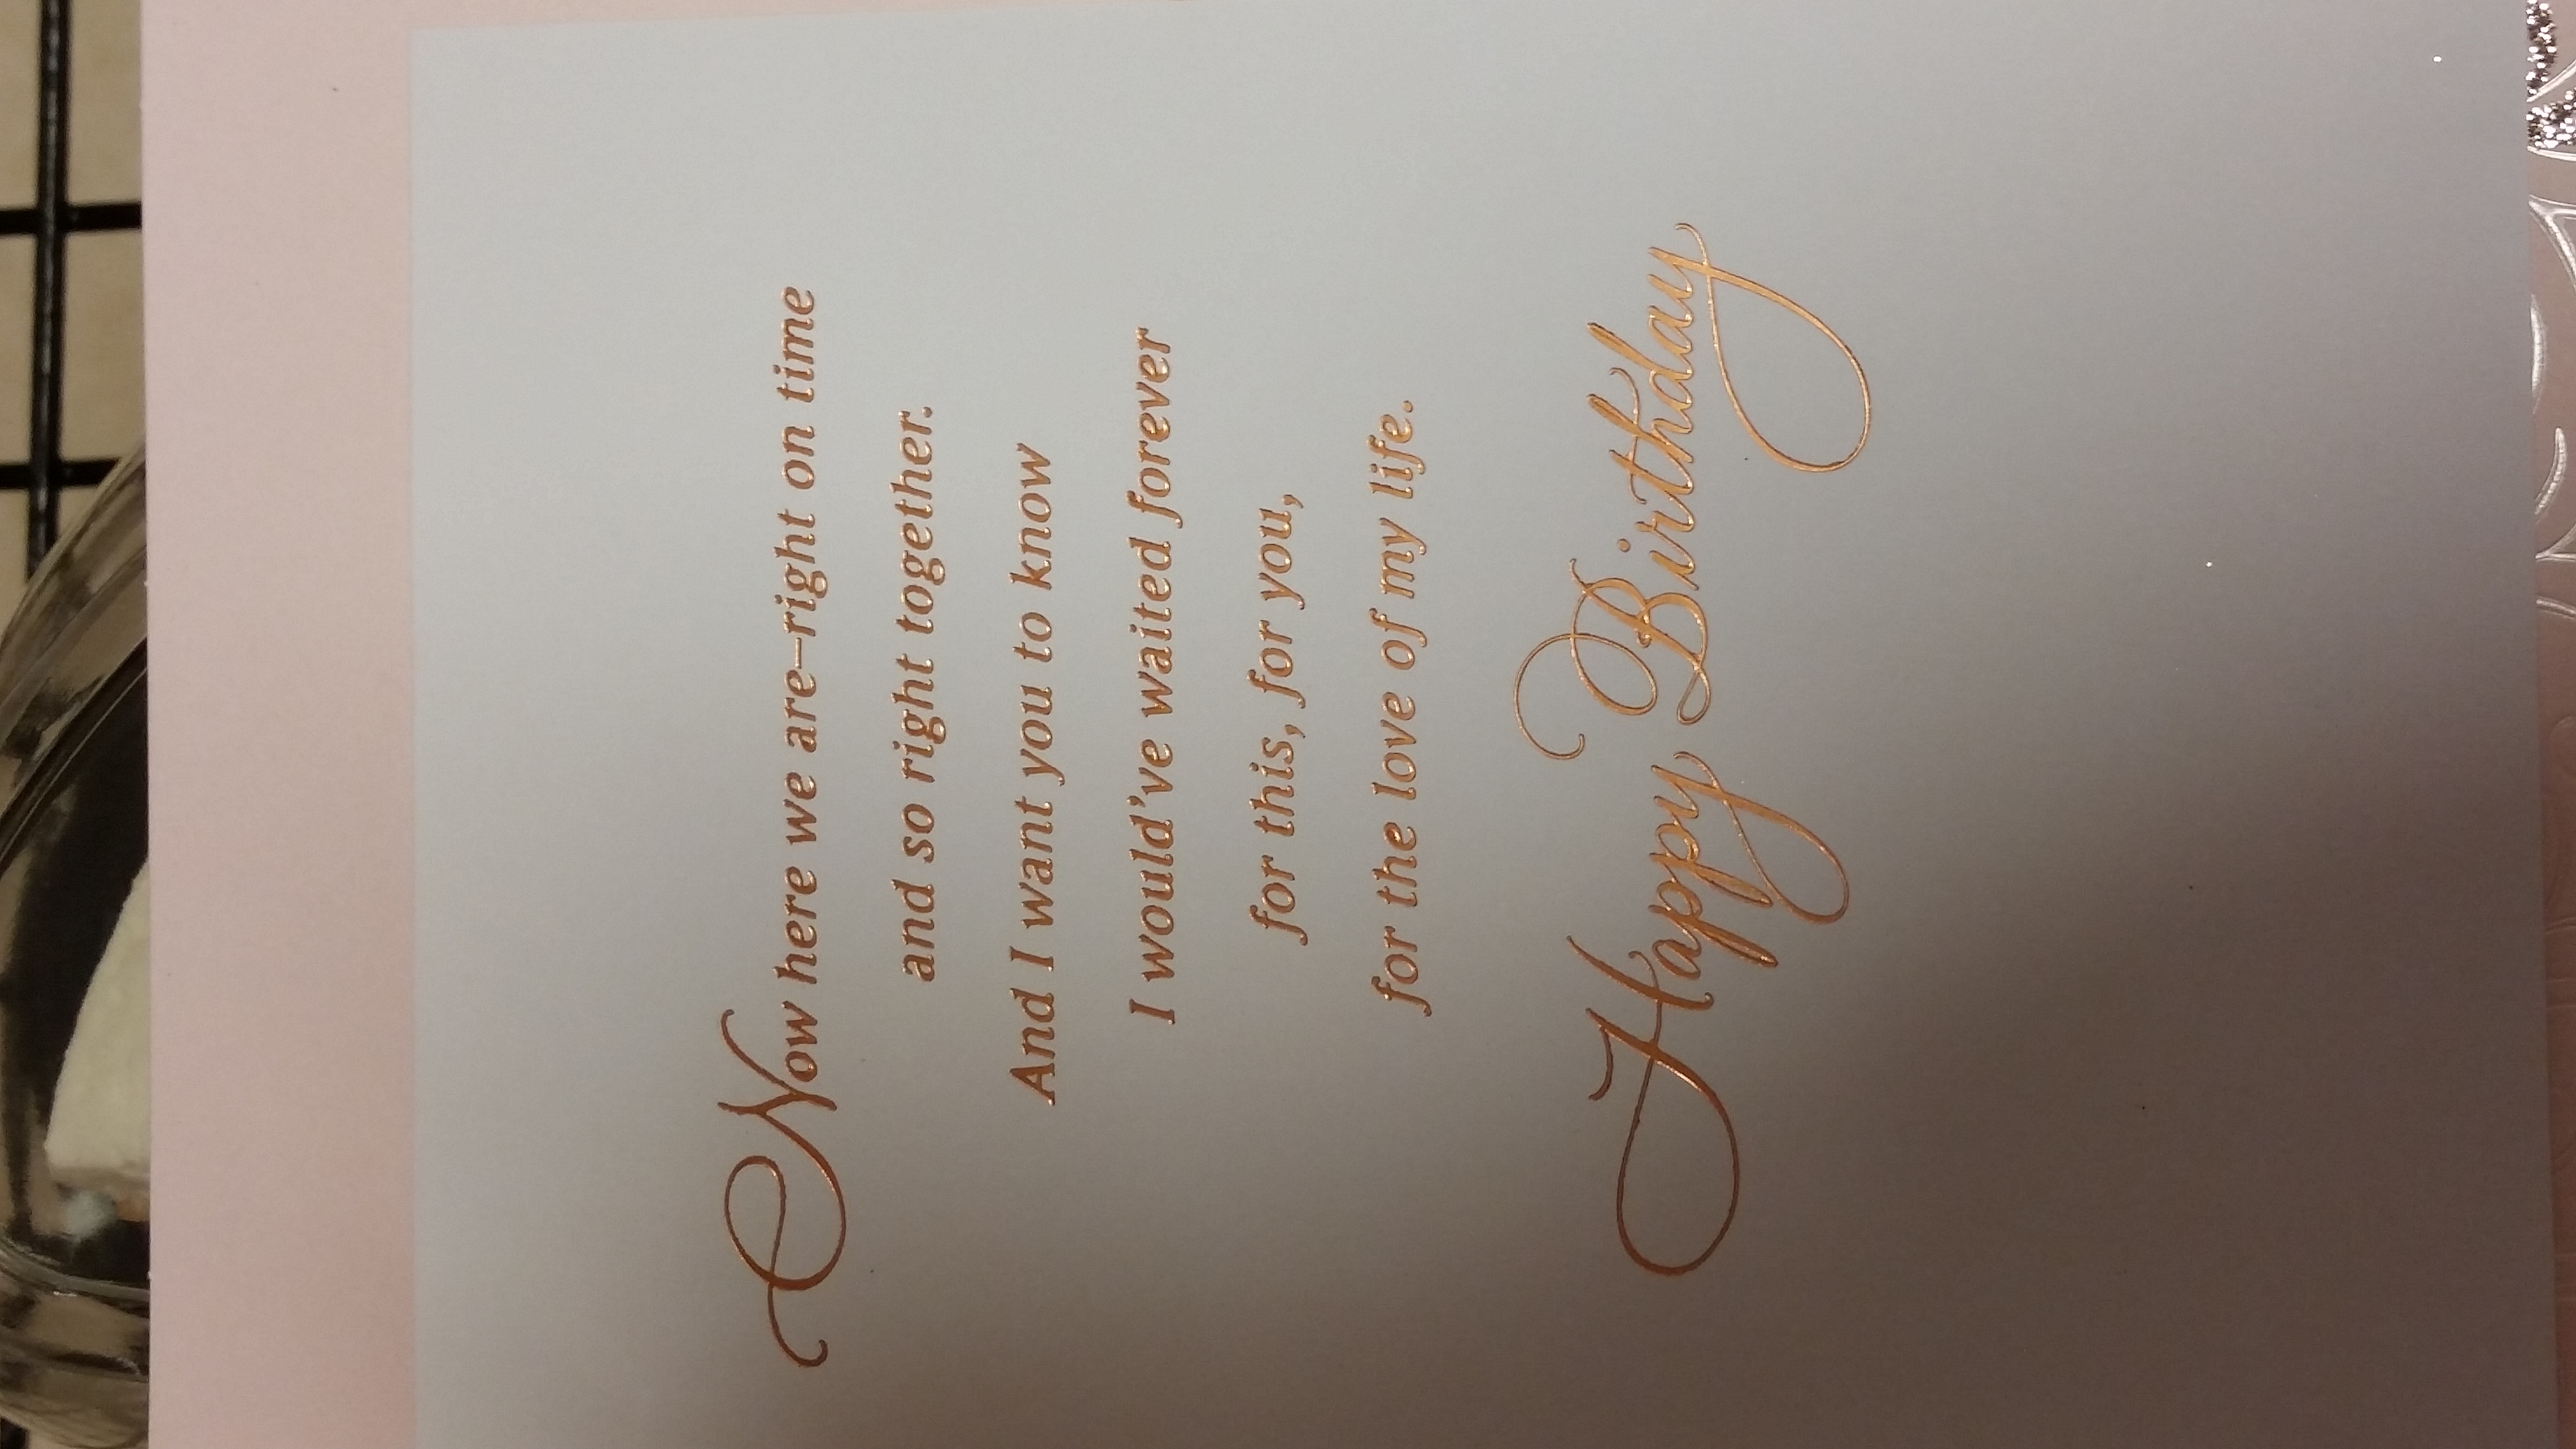 Now here we are–right on time
and so right together.
And I want you to know
I would've waited forever
for this, for you,
for the love of my life.
Happy Birthday